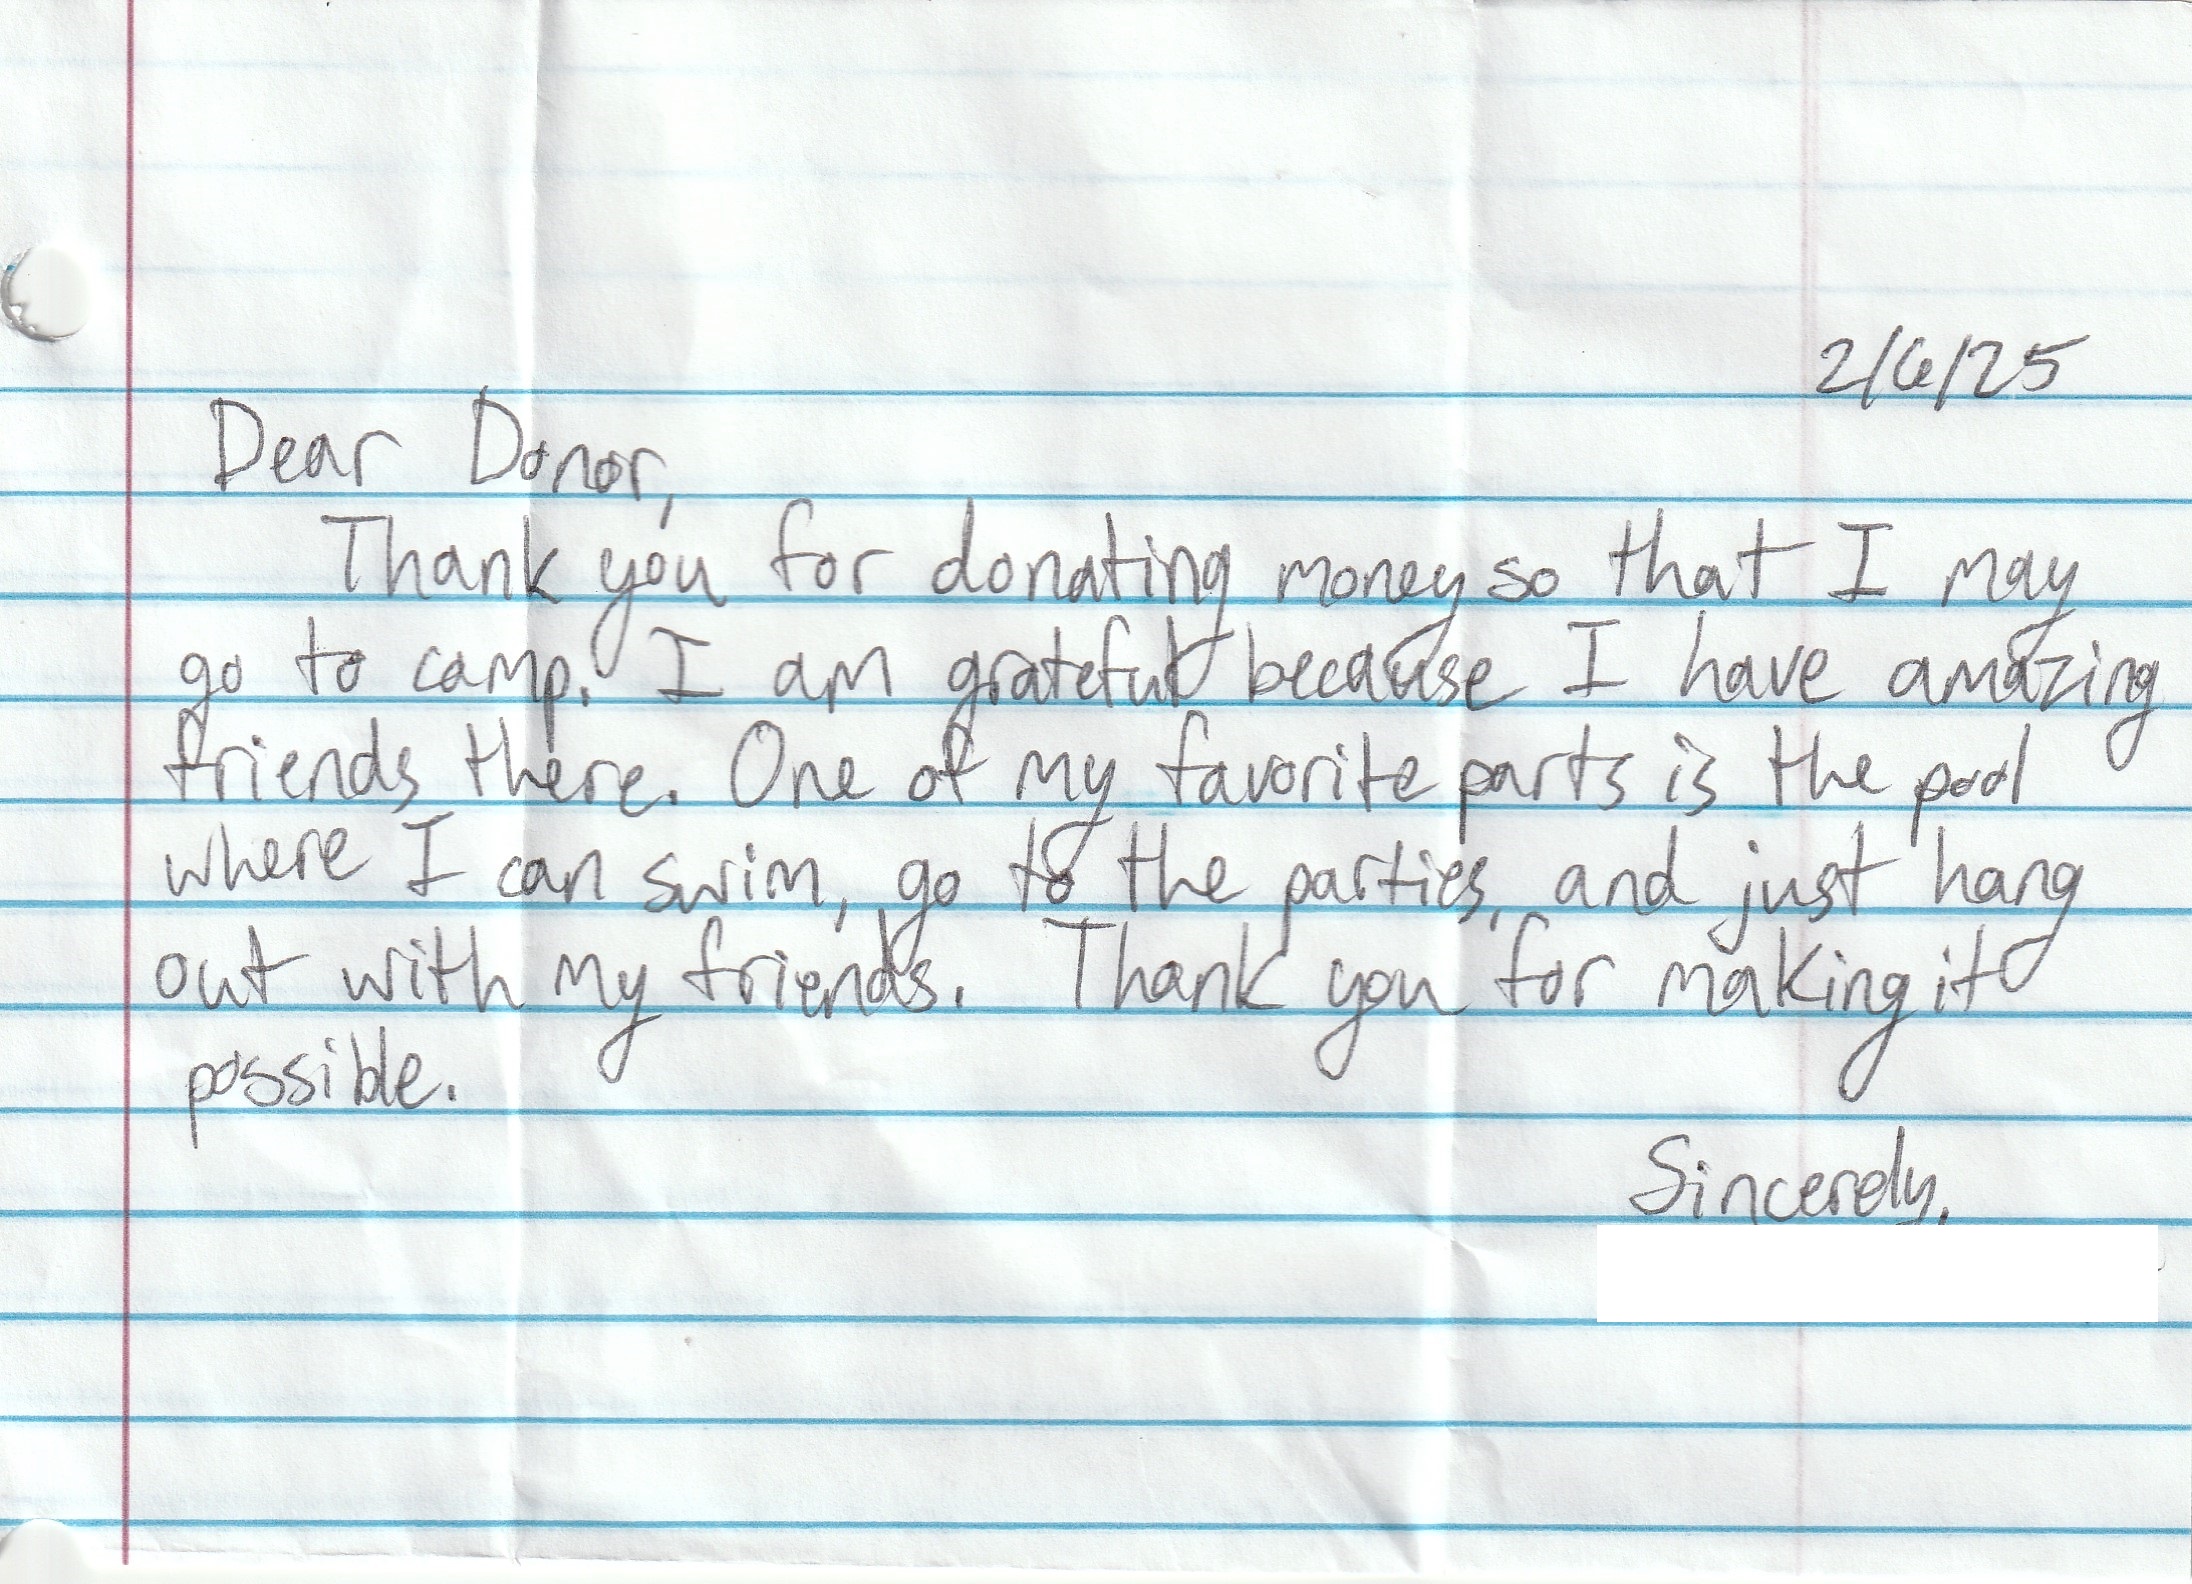 2/6/25
Dear Donor,
Thank you for donating money so that I may
go to camp. I am grateful because I have amazing
friends there. One of my favorite parts is the pool
where I can swim, go to the parties, and just hang
out with my friends. Thank you for making it
possible.
Sincerely,